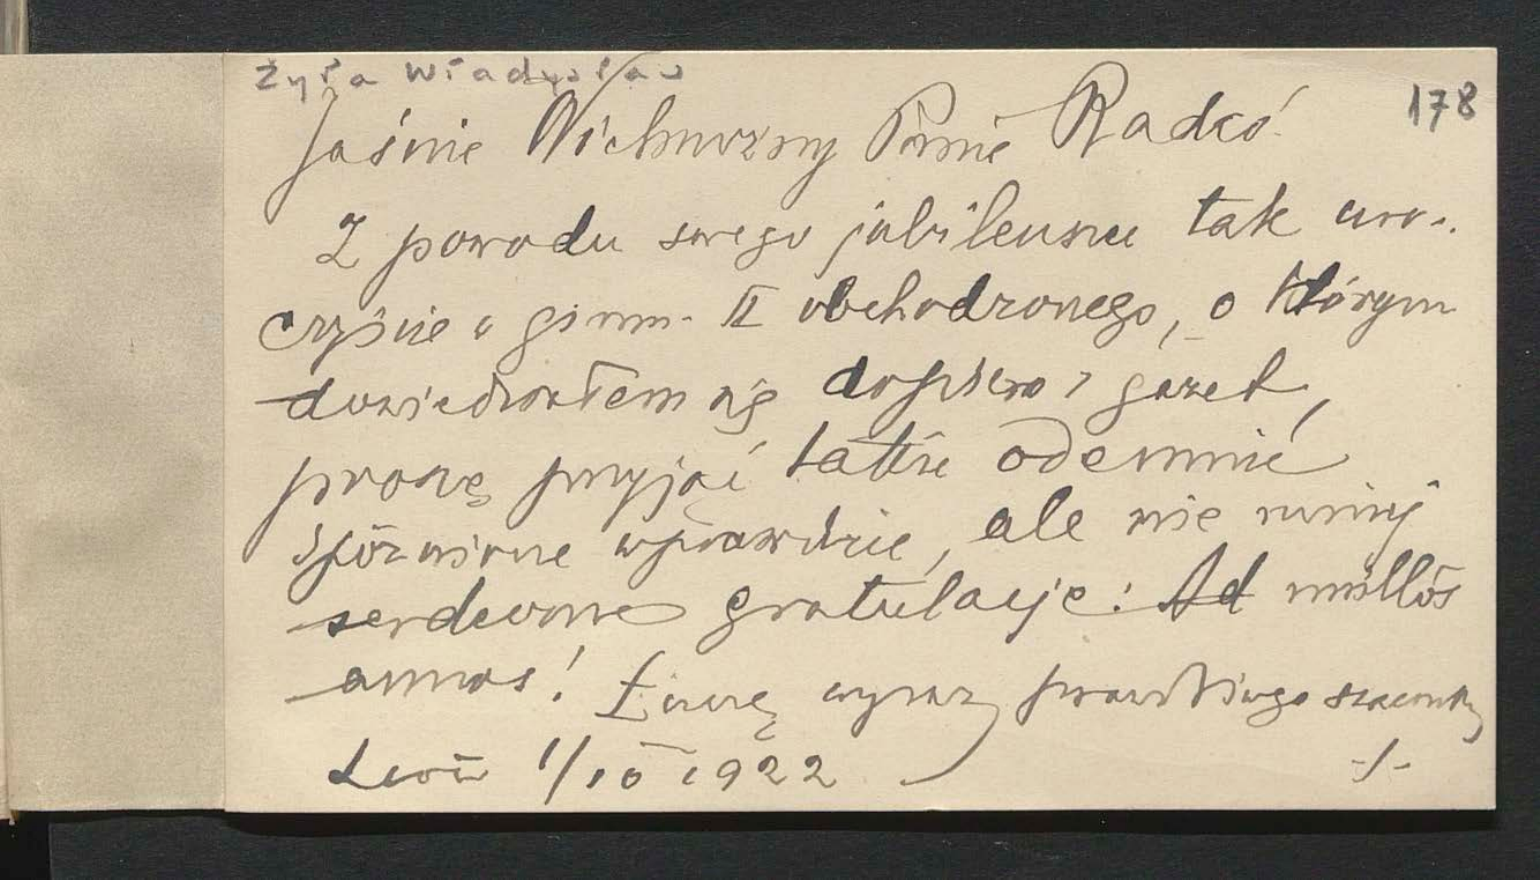 Żyła Władysław
178
Jaśnie Wielmożny Panie Radco
Z powodu swego jubileuszu tak uro-
czyście w gimn. II obchodzonego, o którym
dowiedziałem się dopiero z gazet,
proszę przyjąć także odemnie
spóźnione wprawdzie, ale nie mniej
serdeczne gratulacje: Ad multos
annos! Łączę wyrazy prawdziwego szacunku
Lwów 1/10 1922
-/-